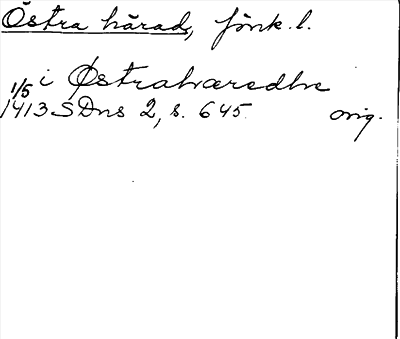 Östra härad, Jönk. l.
i Østrahæredhe
1/5
1413 SDns 2, s. 645 orig.